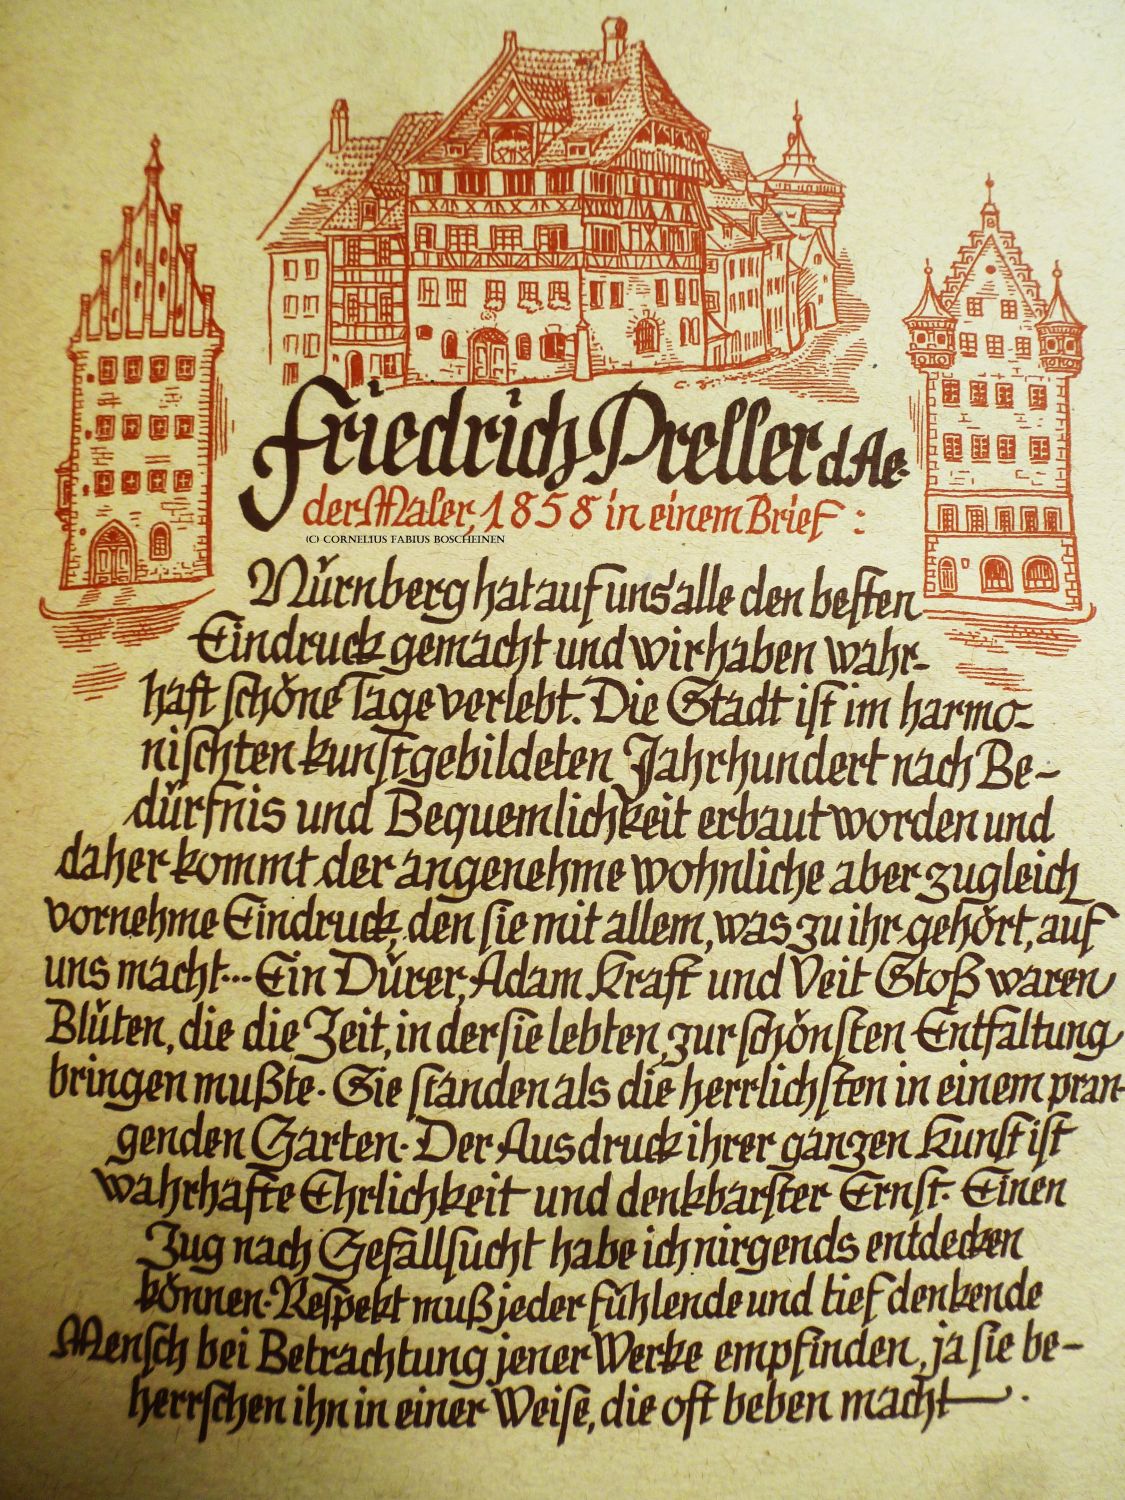 Friedrich Preller d. Ae.
der Maler, 1858 in einem Brief:
(C) CORNELIUS FABIUS BOSCHEINEN
Nürnberg hat auf uns alle den besten
Eindruck gemacht und wir haben wahr-
haft schöne Tage verlebt. Die Stadt ist im harmo-
nischten kunstgebildeten Jahrhundert nach Be-
dürfnis und Bequemlichkeit erbaut worden und
daher kommt der angenehme wohnliche aber zugleich
vornehme Eindruck, den sie mit allem, was zu ihr gehört, auf
uns macht... Ein Dürer, Adam Kraft und Veit Stoß waren
Blüten, die die Zeit, in der sie lebten, zur schönsten Entfaltung
bringen mußte. Sie standen als die herrlichsten in einem pran-
genden Garten. Der Ausdruck ihrer ganzen Kunst ist
wahrhafte Ehrlichkeit und denkbarster Ernst. Einen
Zug nach Gefallsucht habe ich nirgends entdecken
können. Respekt muß jeder fühlende und tief denkende
Mensch bei Betrachtung jener Werke empfinden, ja sie be-
herrschen ihn in einer Weise, die oft beben macht.